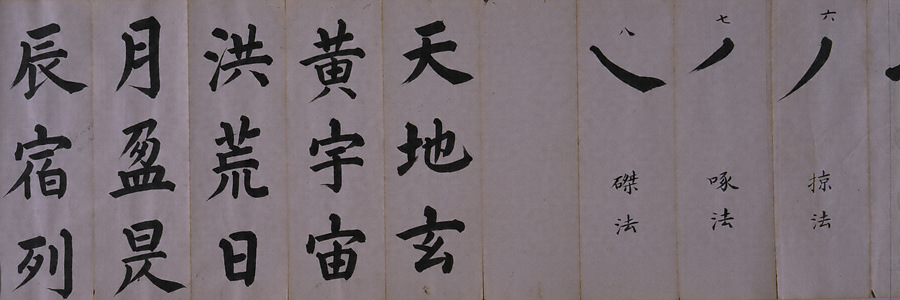 六掠法
七啄法
八磔法
天地玄
黄宇宙
洪荒日
月盈昃
辰宿列